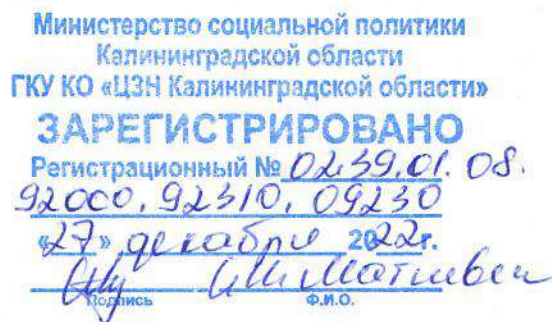 Министерство социальной политики
Калининградской области
ГКУ КО «ЦЗН Калининградской области»
ЗАРЕГИСТРИРОВАНО
Регистрационный № 02.39.01.08.
92000.92310.09230
«27» декабря 2022г.
Подпись Ф.И.О.